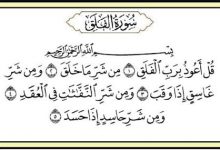 سُورَةُ الفَلَقِ
بِسْمِ اللَّهِ الرَّحْمَٰنِ الرَّحِيمِ
قُلْ أَعُوذُ بِرَبِّ الْفَلَقِ ١ مِن شَرِّ مَا خَلَقَ ٢ وَمِن شَرِّ
غَاسِقٍ إِذَا وَقَبَ ٣ وَمِن شَرِّ النَّفَّاثَاتِ فِي الْعُقَدِ ٤
وَمِن شَرِّ حَاسِدٍ إِذَا حَسَدَ ٥